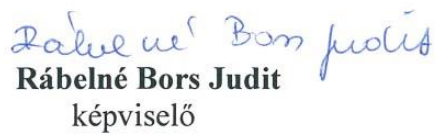 Rábelné Bors Judit
Rábelné Bors Judit
képviselő